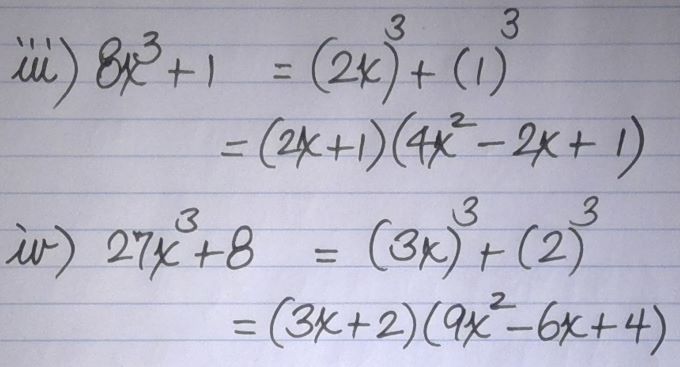 iii) 8x³ + 1 = (2x)³ + (1)³
= (2x + 1)(4x² − 2x + 1)
iv) 27x³ + 8 = (3x)³ + (2)³
= (3x + 2)(9x² − 6x + 4)